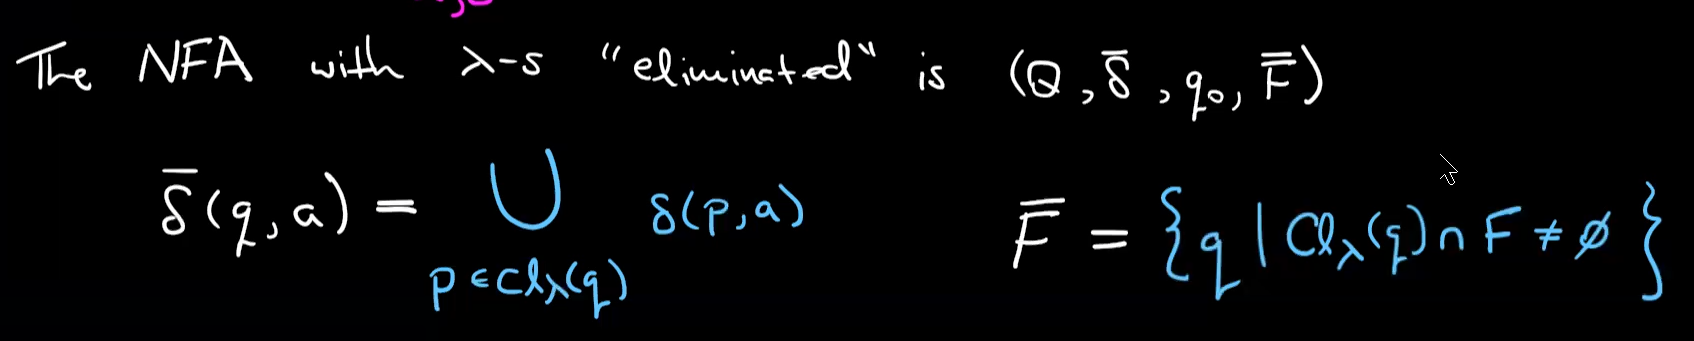 The NFA with λ-s "eliminated" is (Q, δ̄, q₀, F̄)
δ̄(q,a) = ⋃ δ(p,a)
p ∈ Clλ(q)
F̄ = {q | Clλ(q) ∩ F ≠ ∅}